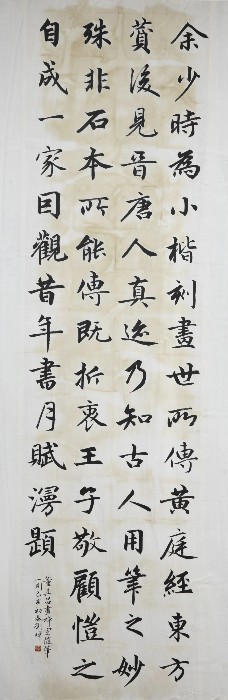 余少時為小楷刻畫世所傳黃庭經東方
贊後見晉唐人真迹乃知古人用筆之妙
殊非石本所能傳既折衷王子敬顧愷之
自成一家因觀昔年書月賦漫題
董其昌畫禪室隨筆